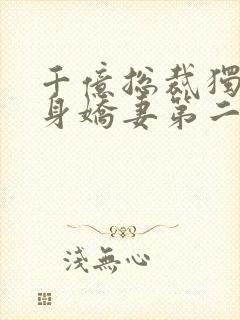 千億總裁獨
身嬌妻第二
淺無心